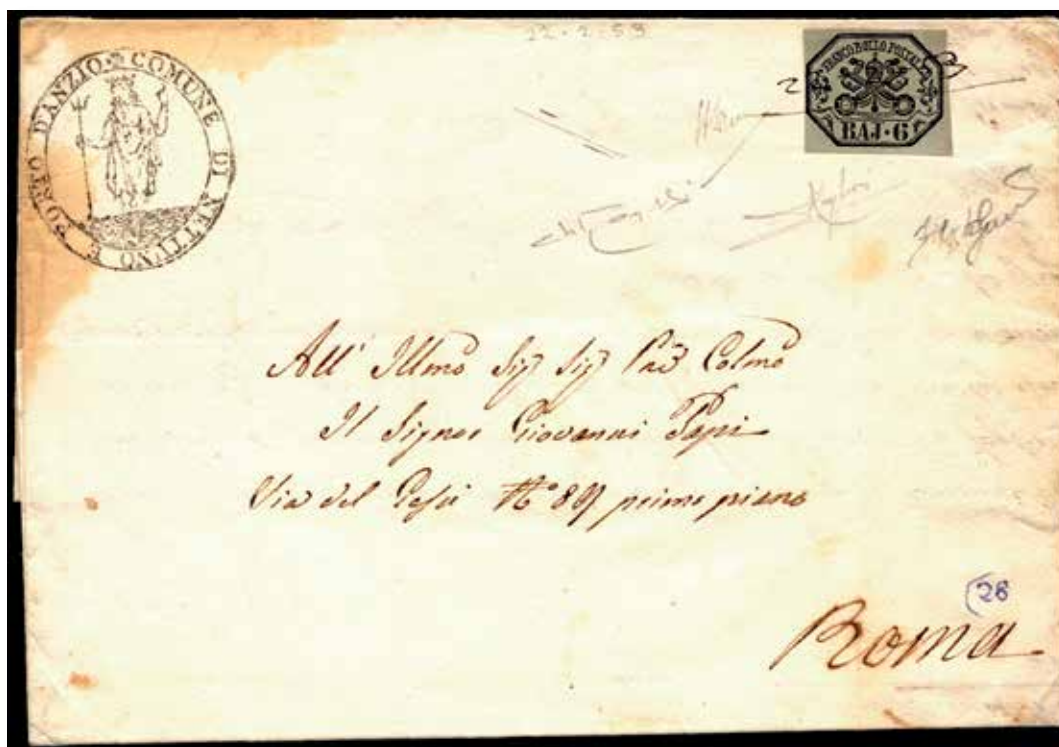 22·2·59
COMUNE DI NETTUNO E PORTO D'ANZIO
FRANCO BOLLO POSTALE
BAJ·6
All' Illmo Sig Sig Colmo
Il Signor Giovanni Papi
Via del Gesù N° 89 primo piano
26
Roma